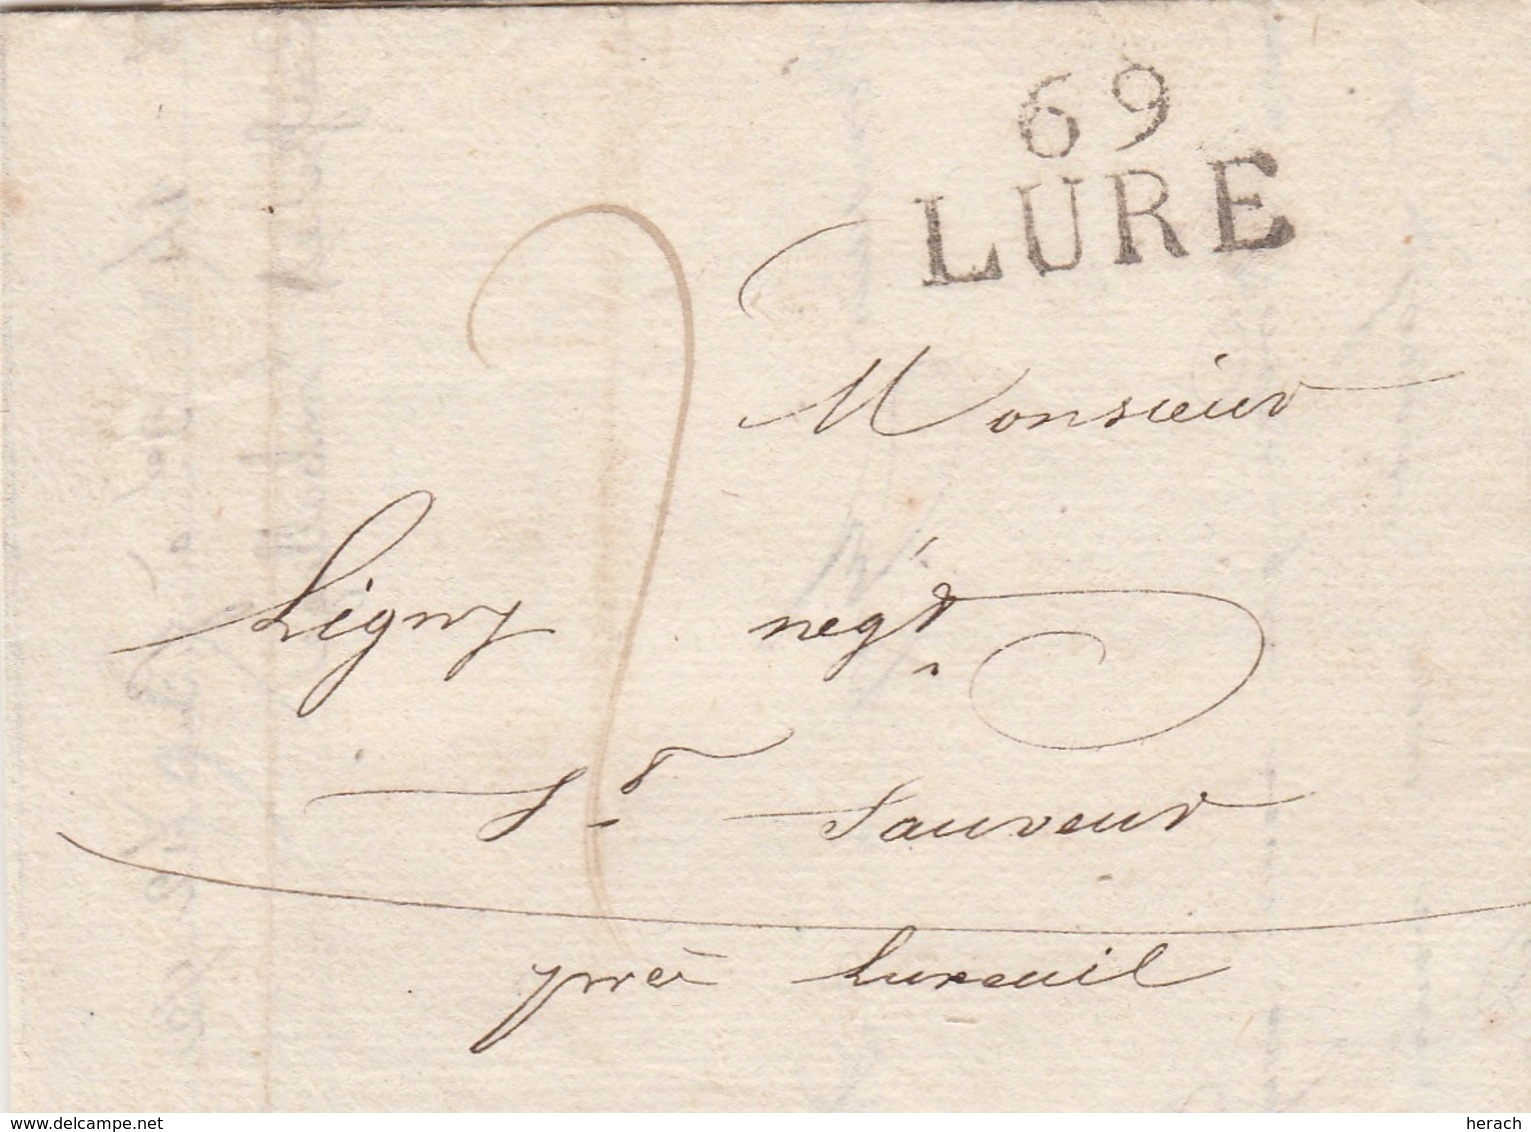 69
LURE
2
Monsieur
Ligny negt
St Sauveur
près Luxeuil
delcampe.net
herach